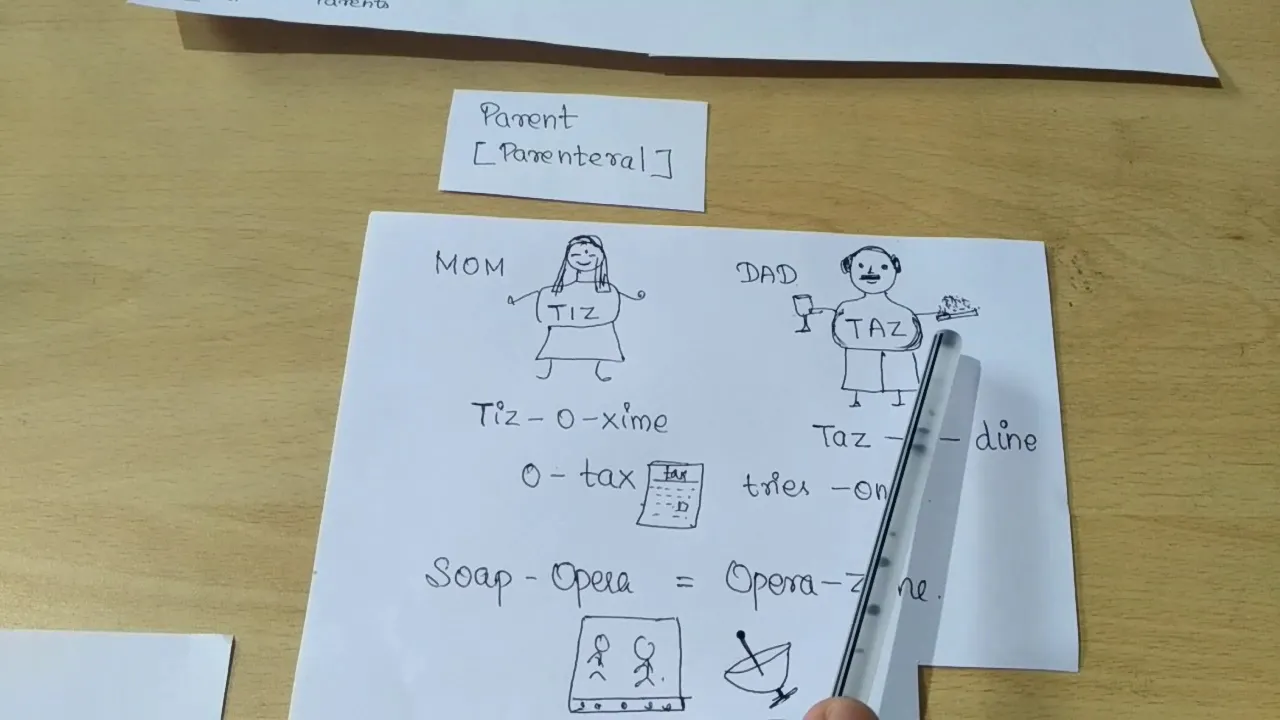 Parents
Parent
[Parenteral]
MOM
DAD
TIZ
TAZ
Tiz-O-xime
Taz - - dine
O-tax
tax
tries-on
Soap-Opera = Opera-